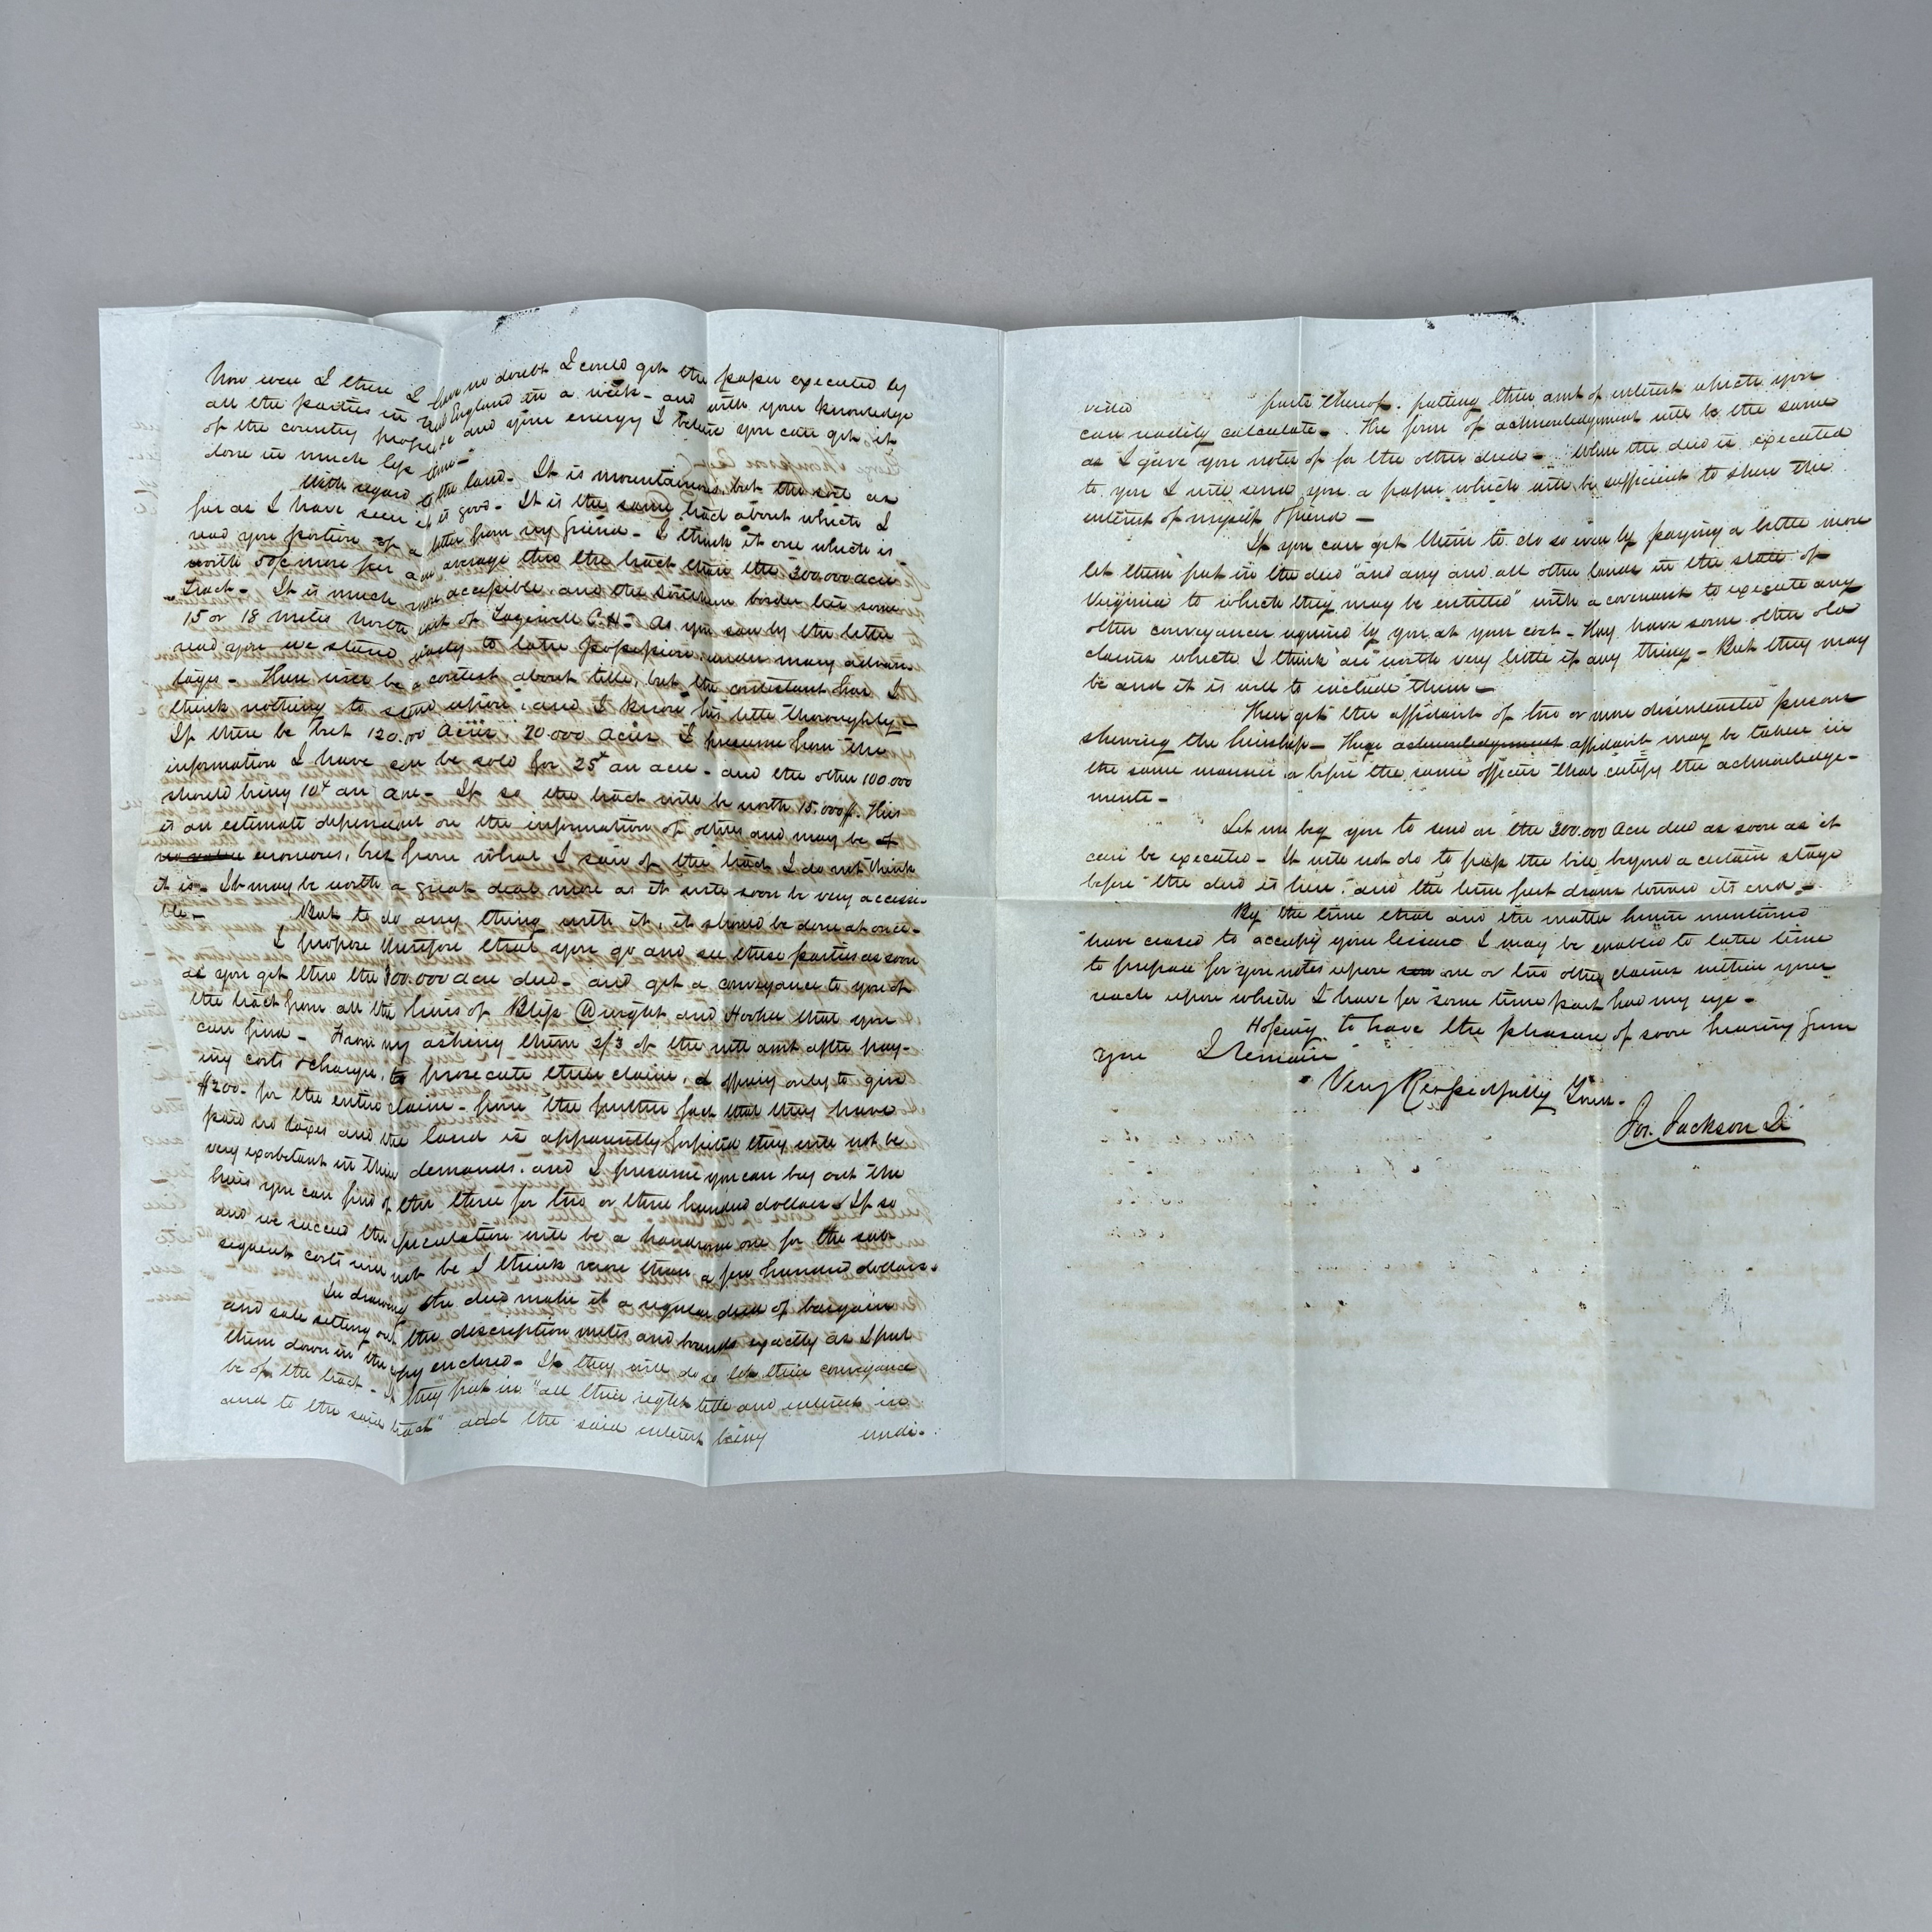 Now were I there I have no doubt I could get the paper executed by
all the parties in New England in a week - and with your knowledge
of the country people and your energy I believe you can get it
done in much less time -
With regard to the land - It is mountainous, but the soil as
far as I have seen it is good - It is the same tract about which I
read you portion of a letter from my friend - I think it one which is
worth 50pc more per acre average thro the tract than the 300.000 acre
Tract - It is much more accessible, and the southern border lies some
15 or 18 miles north west of Tazewell C.H. - As you saw by the letter
read you we stand ready to take possession under many advan-
tages - There will be a contest about title, but the contestant has I
think nothing to stand upon; and I know his title thoroughly -
If there be but 120.000 acres, 20.000 acres I presume from the
information I have can be sold for 25¢ an acre - and the other 100.000
should bring 10¢ an acre - If so the tract will be worth 15.000$. This
is an estimate dependent on the information of others and may be of
no value erroneous, but from what I saw of the tract I do not think
it is - It may be worth a great deal more as it will soon be very accessi-
ble -
But to do any thing with it, it should be done at once -
I propose therefore that you go and see these parties as soon
as you get thro the 300.000 acre deed - and get a conveyance to you of
the tract from all the heirs of Bliss @wright and Hooker that you
can find - From my asking them 2/3 of the nett amt after pay-
ing costs & charges, to prosecute their claim, & offering only to give
$200 - for the entire claim - from the further fact that they have
paid no taxes and the land is apparently forfeited they will not be
very exorbitant in their demands, and I presume you can buy out the
heirs you can find of the three for two or three hundred dollars. If so
and we succeed the speculation will be a handsome one for the sub-
sequent costs will not be I think more than a few hundred dollars.
In drawing the deed make it a regular deed of bargain
and sale setting out the description metes and bounds exactly as I put
them down in the copy enclosed - If they will do so let their conveyance
be of the tract - If they put in "all their right title and interest in
and to the said tract" add the said interest being undi-
vided parts thereof, putting their amt of interest which you
can readily calculate - The form of acknowledgement will be the same
as I gave you notes of for the other deed - When the deed is executed
to you I will send you a paper which will be sufficient to shew the
interest of myself & friend -
If you can get them to do so even by paying a little more
let them put in the deed "and any and all other lands in the state of
Virginia to which they may be entitled" with a covenant to execute any
other conveyances required by you at your cost - They have some other old
claims which I think are worth very little if any thing - But they may
be and it is well to include them -
Then get the affidavit of two or more disinterested persons
shewing the heirship - These acknowledgement affidavits may be taken in
the same manner & before the same officers that certify the acknowledge-
ments -
Let me beg you to send on the 300.000 acre deed as soon as it
can be executed - It will not do to pass the bill beyond a certain stage
before the deed is here, and the time fast draws toward its end -
By the time that and the matter herein mentioned
have ceased to occupy your leisure I may be enabled to take time
to prepare for you notes upon one or two other claims within your
reach upon which I have for some time past had my eye -
Hoping to have the pleasure of soon hearing from
you I remain
Very Respectfully Yours.
Jos. Jackson Jr